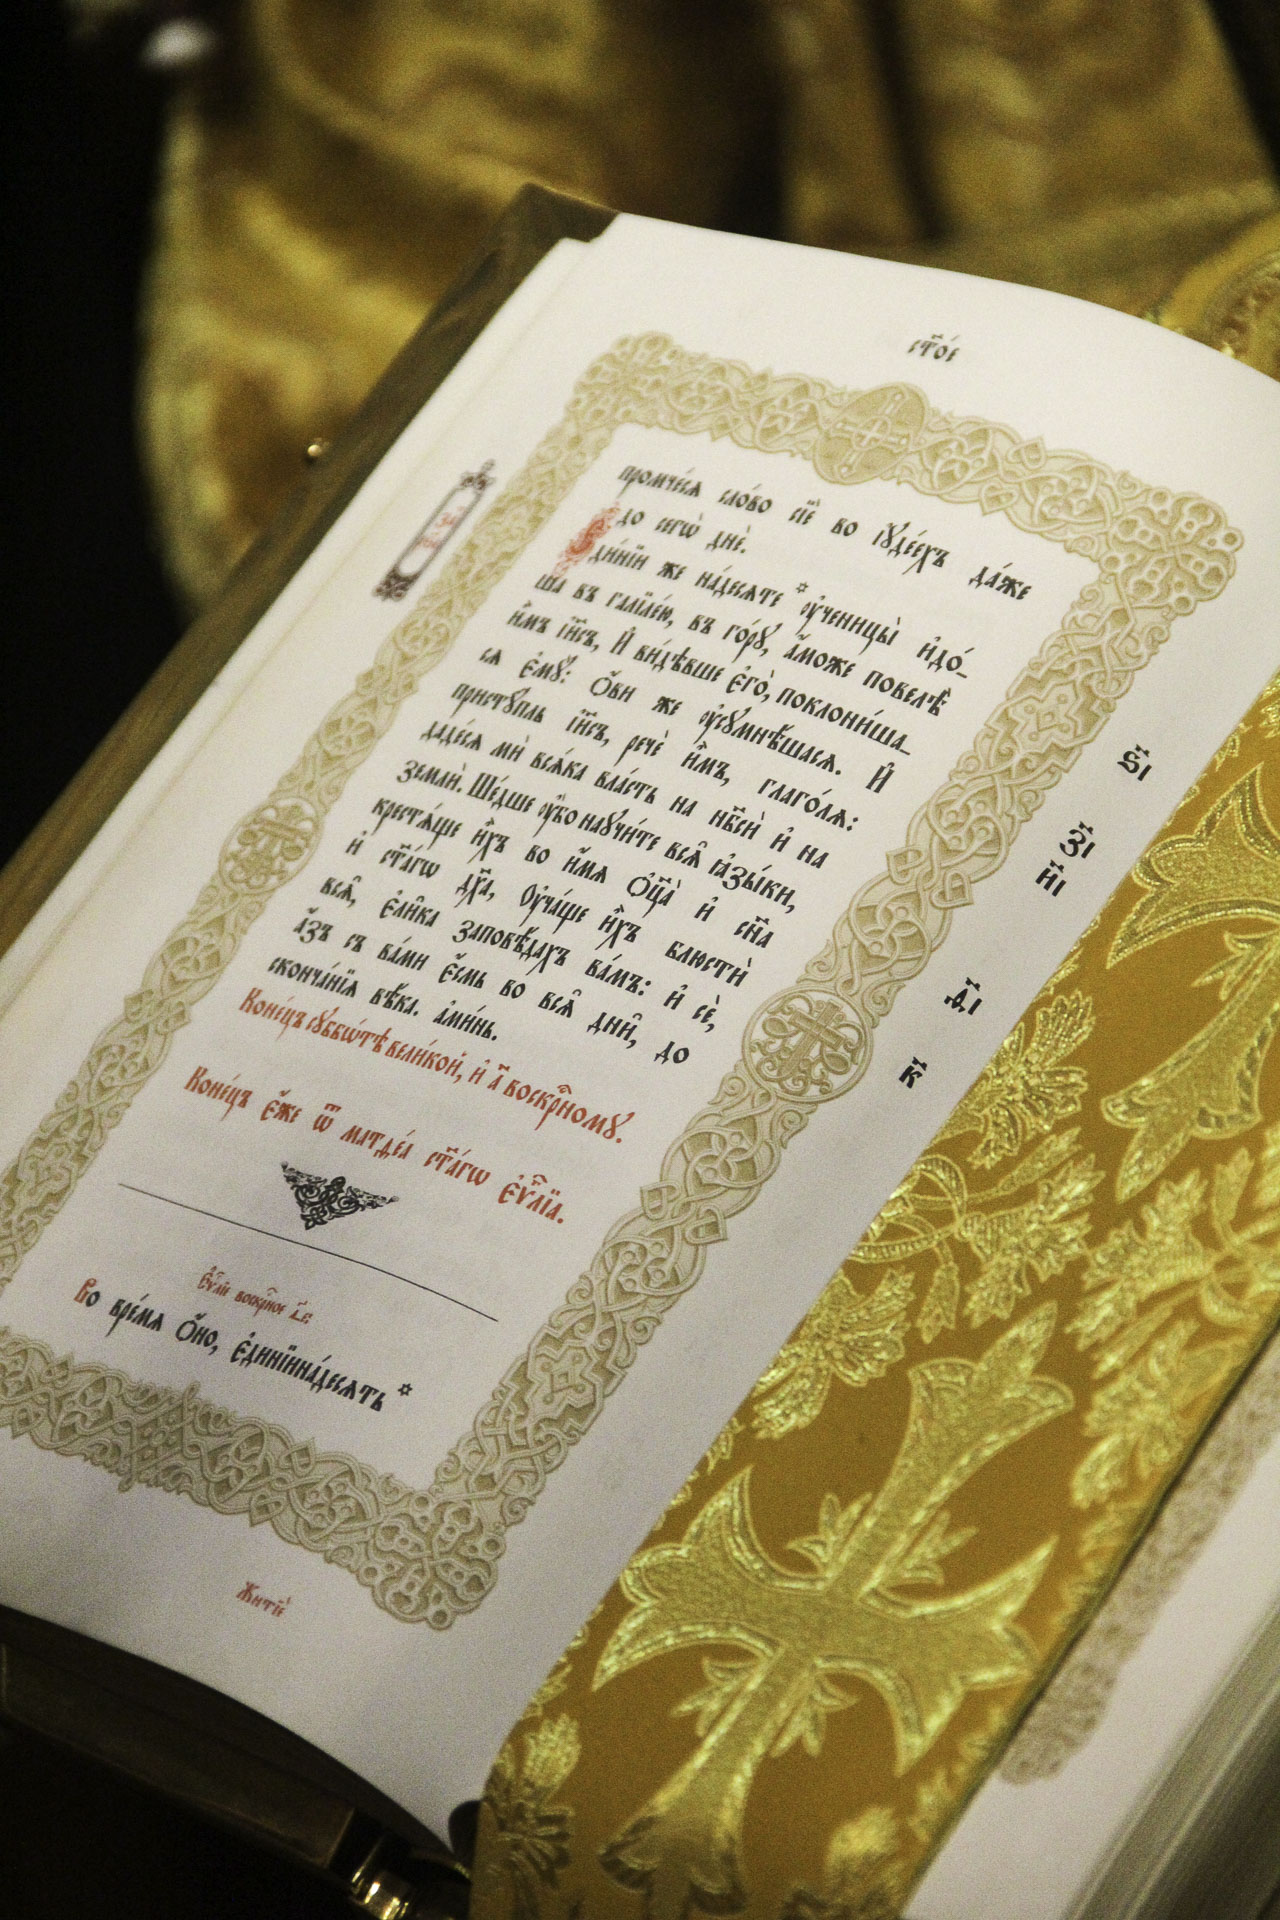 ст҃о́е
промче́сѧ сло́во сїѐ во і҆ꙋде́ехъ да́же
до сегѡ̀ днѐ.
Є҆ди́нїи же на́десѧте * ᲂу҆чн҃цы̀ и҆до́-
ша въ галїле́ю, въ го́рꙋ, а҆́може повелѣ̀
и҆̀мъ і҆и҃съ, И҆ ви́дѣвше є҆го̀, поклони́ша-
сѧ є҆мꙋ̀: Ѻ҆́ви же ᲂу҆сꙋмнѣ́шасѧ. И҆
пристꙋ́пль і҆и҃съ, речѐ и҆̀мъ, глаго́лѧ:
даде́сѧ мѝ всѧ́ка вла́сть на нб҃сѝ и҆ на
землѝ. Ше́дше ᲂу҆̀бо наꙋчи́те всѧ̑ ꙗ҆зы́ки,
крестѧ́ще и҆̀хъ во и҆́мѧ ѻ҆ц҃а̀ и҆ сн҃а
и҆ ст҃а́гѡ дх҃а, Оу҆ча́ще и҆̀хъ блюстѝ
всѧ̑, є҆ли̑ка заповѣ́дахъ ва́мъ: и҆ сѐ,
а҆́зъ съ ва́ми є҆́смь во всѧ̑ дни̑, до
сконча́нїѧ вѣ́ка. а҆ми́нь.
Коне́цъ сꙋббѡ́тѣ вели́кой, и҆ а҃ воскрⷭ҇номꙋ.
Коне́цъ є҆́же ѿ матѳе́а ст҃а́гѡ є҆ѵⷢ҇лїа.
Є҆ѵⷢ҇лїе воскрⷭ҇ное а҃-е:
Во вре́мѧ ѻ҆́но, є҆динїина́десѧть *
Житїѐ
ѕ҃і
з҃і
и҃і
ѳ҃і
к҃